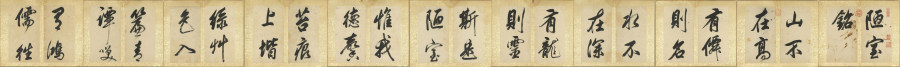 陋室
銘
山不
在高
有僊
則名
水不
在深
有龍
則靈
斯是
陋室
惟我
德馨
苔痕
上堦
綠艸
色入
簾青
譚咲
有鴻
儒往